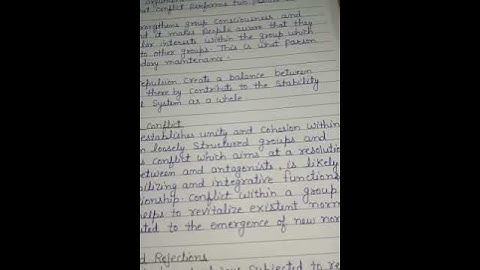 but conflict performs two
strengthens group consciousness and
d it makes people aware that they
lar interests within the group which
to other groups. This is what Parson
dary maintenance.
repulsion create a balance between
there by contribute to the stability
System as a whole
Conflict
establishes unity and cohesion within
n loosely structured groups and
s conflict which aims at a resolution
between and antagonists, is likely
bilizing and integrative functions
ionship. Conflict within a group
helps to revitalize existent norm
ted to the emergence of new nor
d Rejections
subjected to re